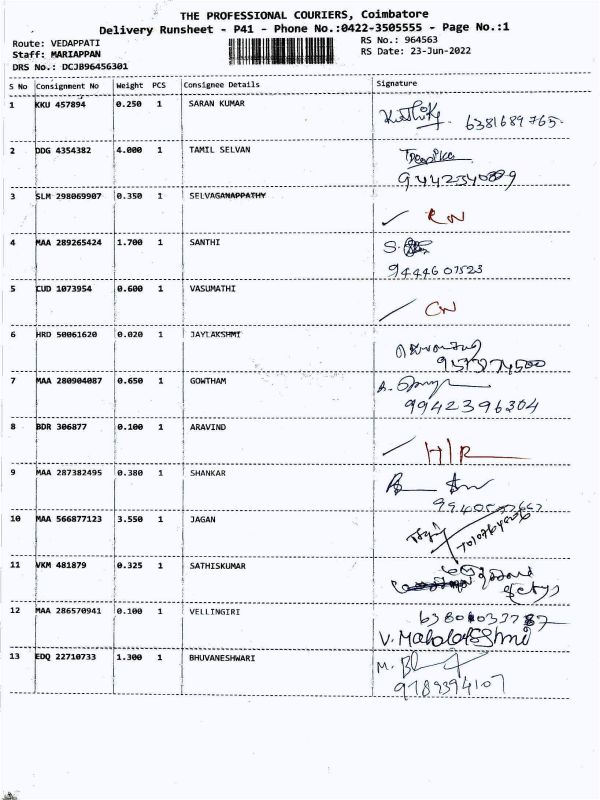 THE PROFESSIONAL COURIERS, Coimbatore
Delivery Runsheet - P41 - Phone No.:0422-3505555 - Page No.:1
Route: VEDAPPATI RS No.: 964563
Staff: MARIAPPAN RS Date: 23-Jun-2022
DRS No.: DCJB96456301
S No Consignment No Weight PCS Consignee Details Signature
1 KKU 457894 0.250 1 SARAN KUMAR
6381689765.
2 DDG 4354382 4.000 1 TAMIL SELVAN
3 SLM 298069907 0.350 1 SELVAGANAPPATHY
RN
4 MAA 289265424 1.700 1 SANTHI
9444607523
5 CUD 1073954 0.600 1 VASUMATHI
CN
6 HRD 50061620 0.020 1 JAYLAKSHMI
7 MAA 280904087 0.650 1 GOWTHAM
9942396304
8 BDR 306877 0.100 1 ARAVIND
H/R
9 MAA 287382495 0.380 1 SHANKAR
10 MAA 566877123 3.550 1 JAGAN
11 VKM 481879 0.325 1 SATHISKUMAR
12 MAA 286570941 0.100 1 VELLINGIRI
13 EDQ 22710733 1.300 1 BHUVANESHWARI
9789394107